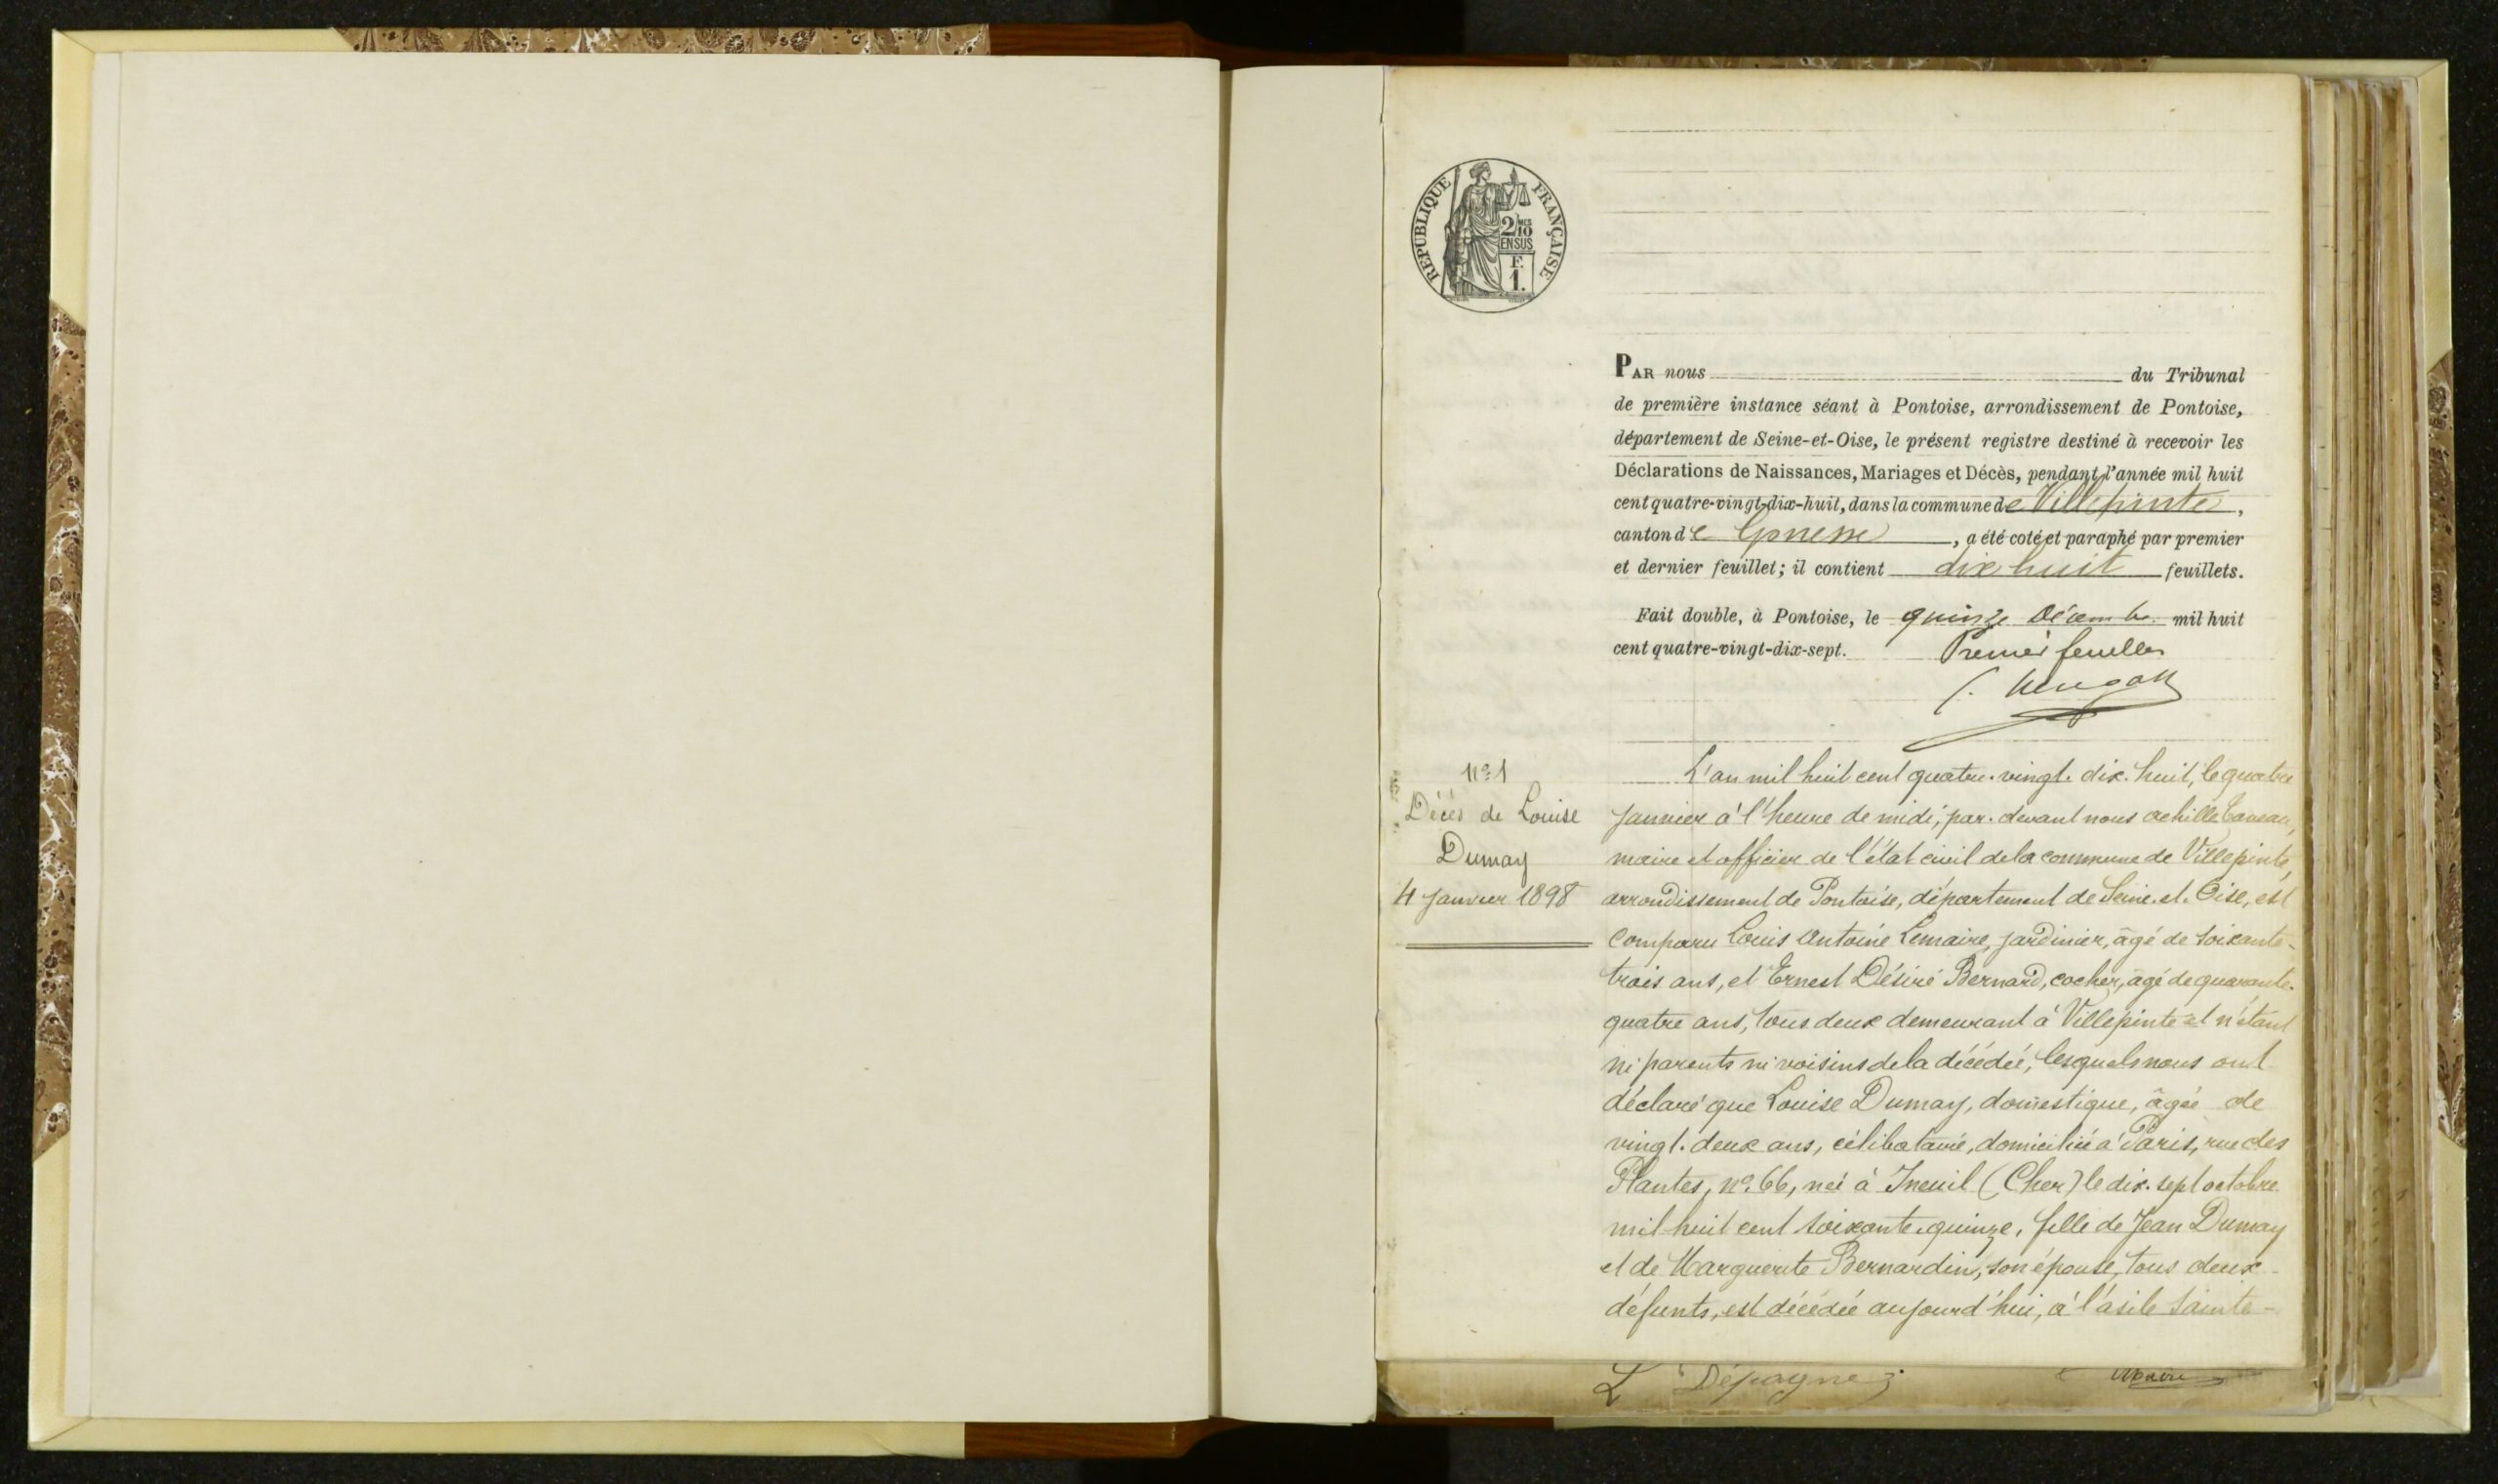 RÉPUBLIQUE FRANÇAISE
2/10 MES
EN SUS
F.
1.
PAR nous du Tribunal
de première instance séant à Pontoise, arrondissement de Pontoise,
département de Seine-et-Oise, le présent registre destiné à recevoir les
Déclarations de Naissances, Mariages et Décès, pendant l'année mil huit
cent quatre-vingt-dix-huit, dans la commune de Villepinte,
canton de Gonesse, a été coté et paraphé par premier
et dernier feuillet; il contient dix huit feuillets.
Fait double, à Pontoise, le quinze Décemb. mil huit
cent quatre-vingt-dix-sept. Premier feuillet
nº 1
Décès de Louise
Dumay
4 Janvier 1898
L'an mil huit cent quatre-vingt-dix-huit, le quatre
Janvier à l'heure de midi, par-devant nous Achille
maire et officier de l'état civil de la commune de Villepinte,
arrondissement de Pontoise, département de Seine-et-Oise, est
Comparu Louis Antoine Lemaire, jardinier, âgé de soixante-
trois ans, et Ernest Désiré Bernard, cocher, âgé de quarante-
quatre ans, tous deux demeurant à Villepinte et n'étant
ni parents ni voisins de la décédée, lesquels nous ont
déclaré que Louise Dumay, domestique, âgée de
vingt-deux ans, célibataire, domiciliée à Paris, rue des
Plantes, nº 66, née à Ineuil (Cher) le dix-sept octobre
mil huit cent soixante-quinze, fille de Jean Dumay
et de Marguerite Bernardin, son épouse, tous deux
défunts, est décédée aujourd'hui, à l'asile Sainte-
L Dépagne